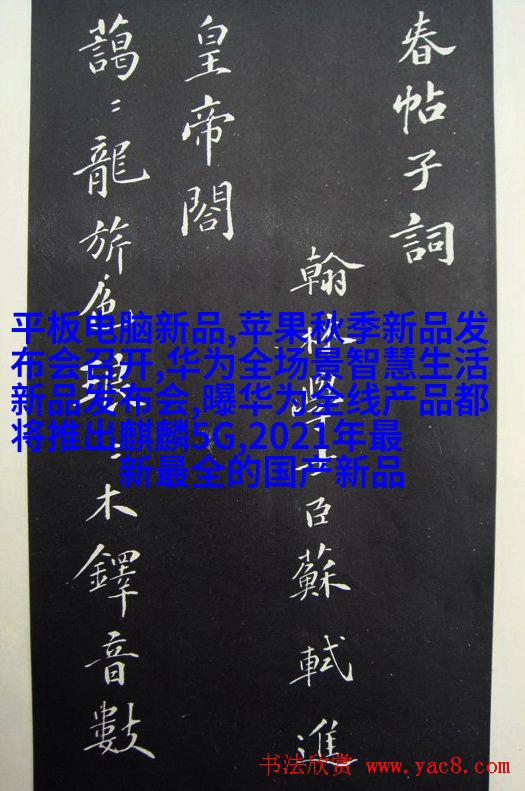 春帖子詞
翰林學士臣蘇軾進
皇帝閣
藹〻龍旂色琅〻木鐸音數
平板电脑新品,苹果秋季新品发
布会召开,华为全场景智慧生活
新品发布会,曝华为全线产品都
将推出麒麟5G,2021年最
新最全的国产新品
书法欣赏 www.yac8.com